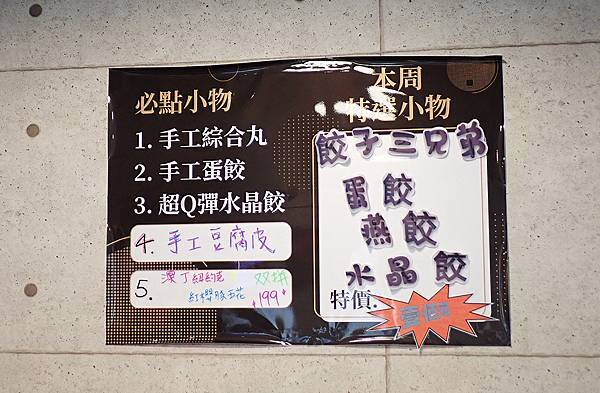 必點小物
1. 手工綜合丸
2. 手工蛋餃
3. 超Q彈水晶餃
4. 手工豆腐皮
5. 澳丁紐約克
紅櫻豚五花
双拼
$199
本周
特選小物
餃子三兄弟
蛋餃
燕餃
水晶餃
特價: